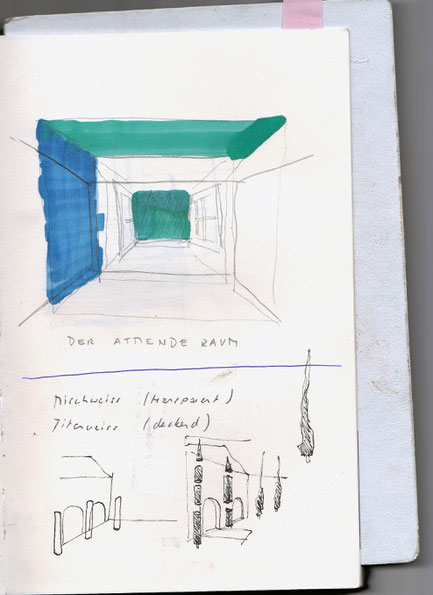 DER ATMENDE RAUM
Mischweiss (transparent)
Titanweiss (deckend)